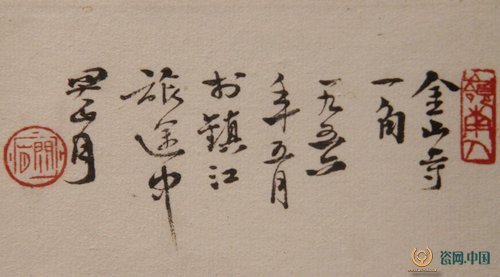 金山寺
一角
一九五六
年五月
於鎮江
旅途中
關山月
嶺南人
關山月
瓷网.中国